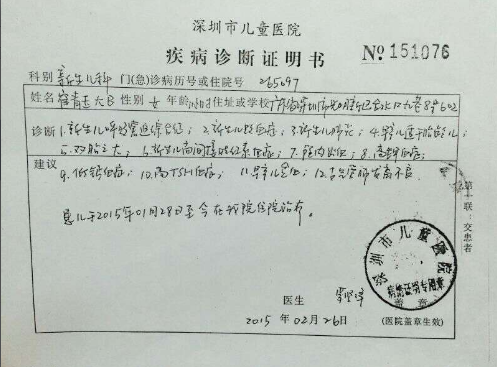 深圳市儿童医院
疾病诊断证明书 Nº 151076
科别 新生儿科 门(急)诊病历号或住院号 265697
姓名 大B 性别 女 年龄 住址或学校 广东省深圳市
诊断 1.新生儿呼吸窘迫综合征; 2.新生儿败血症; 3.新生儿肺炎; 4.早产儿适于胎龄儿;
5.双胎之大; 6.新生儿高间接胆红素血症; 7.颅内出血; 8.高钾血症;
建议 9.低钙血症; 10.高TSH血症; 11.早产儿贫血; 12.不良
患儿于2015年01月28日至今在我院住院治疗。
第一联:交患者
深圳市儿童医院
疾病证明专用章
医生
盖章
2015年02月26日 (医院盖章生效)